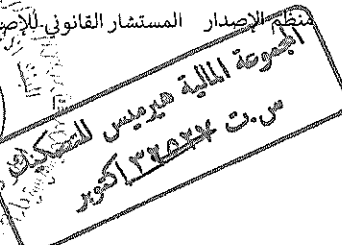 منظم الإصدار المستشار القانوني للإص
المجموعة المالية هيرميس للتصكيك
س.ت اكتوبر